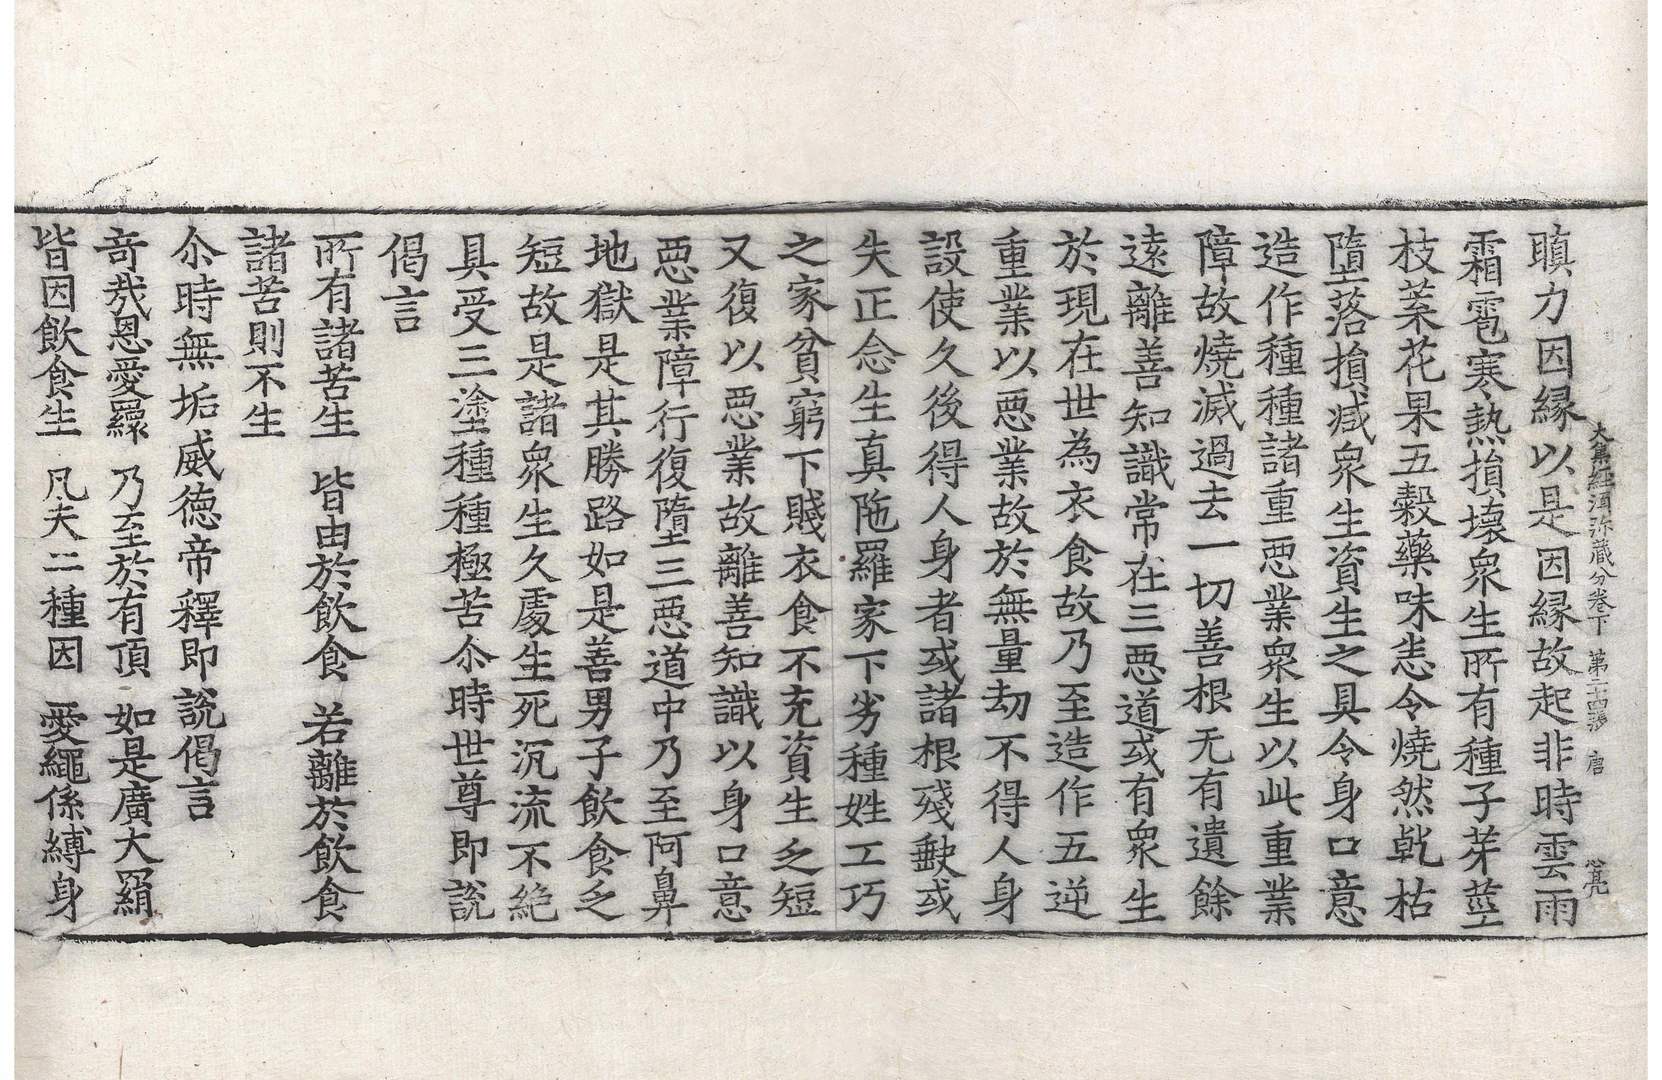 大集經須弥藏分卷下 第二十四張 唐 心亮
瞋力因縁以是因縁故起非時雲雨
霜雹寒熱損壞衆生所有種子芽莖
枝葉花果五穀藥味恚令燒然乹枯
墮落損减衆生資生之具令身口意
造作種種諸重惡業衆生以此重業
障故燒滅過去一切善根无有遺餘
遠離善知識常在三惡道或有衆生
於現在世為衣食故乃至造作五逆
重業以惡業故於無量劫不得人身
設使久後得人身者或諸根殘缺或
失正念生真陁羅家下劣種姓工巧
之家貧窮下賤衣食不充資生乏短
又復以惡業故離善知識以身口意
惡業障行復墮三惡道中乃至阿鼻
地獄是其勝路如是善男子飲食乏
短故是諸衆生久處生死沉流不絶
具受三塗種種極苦尒時世尊即說
偈言
所有諸苦生 皆由於飲食 若離於飲食
諸苦則不生
尒時無垢威德帝釋即說偈言
竒哉恩愛羅 乃至於有頂 如是廣大羂
皆因飲食生 凡夫二種因 愛繩係縛身